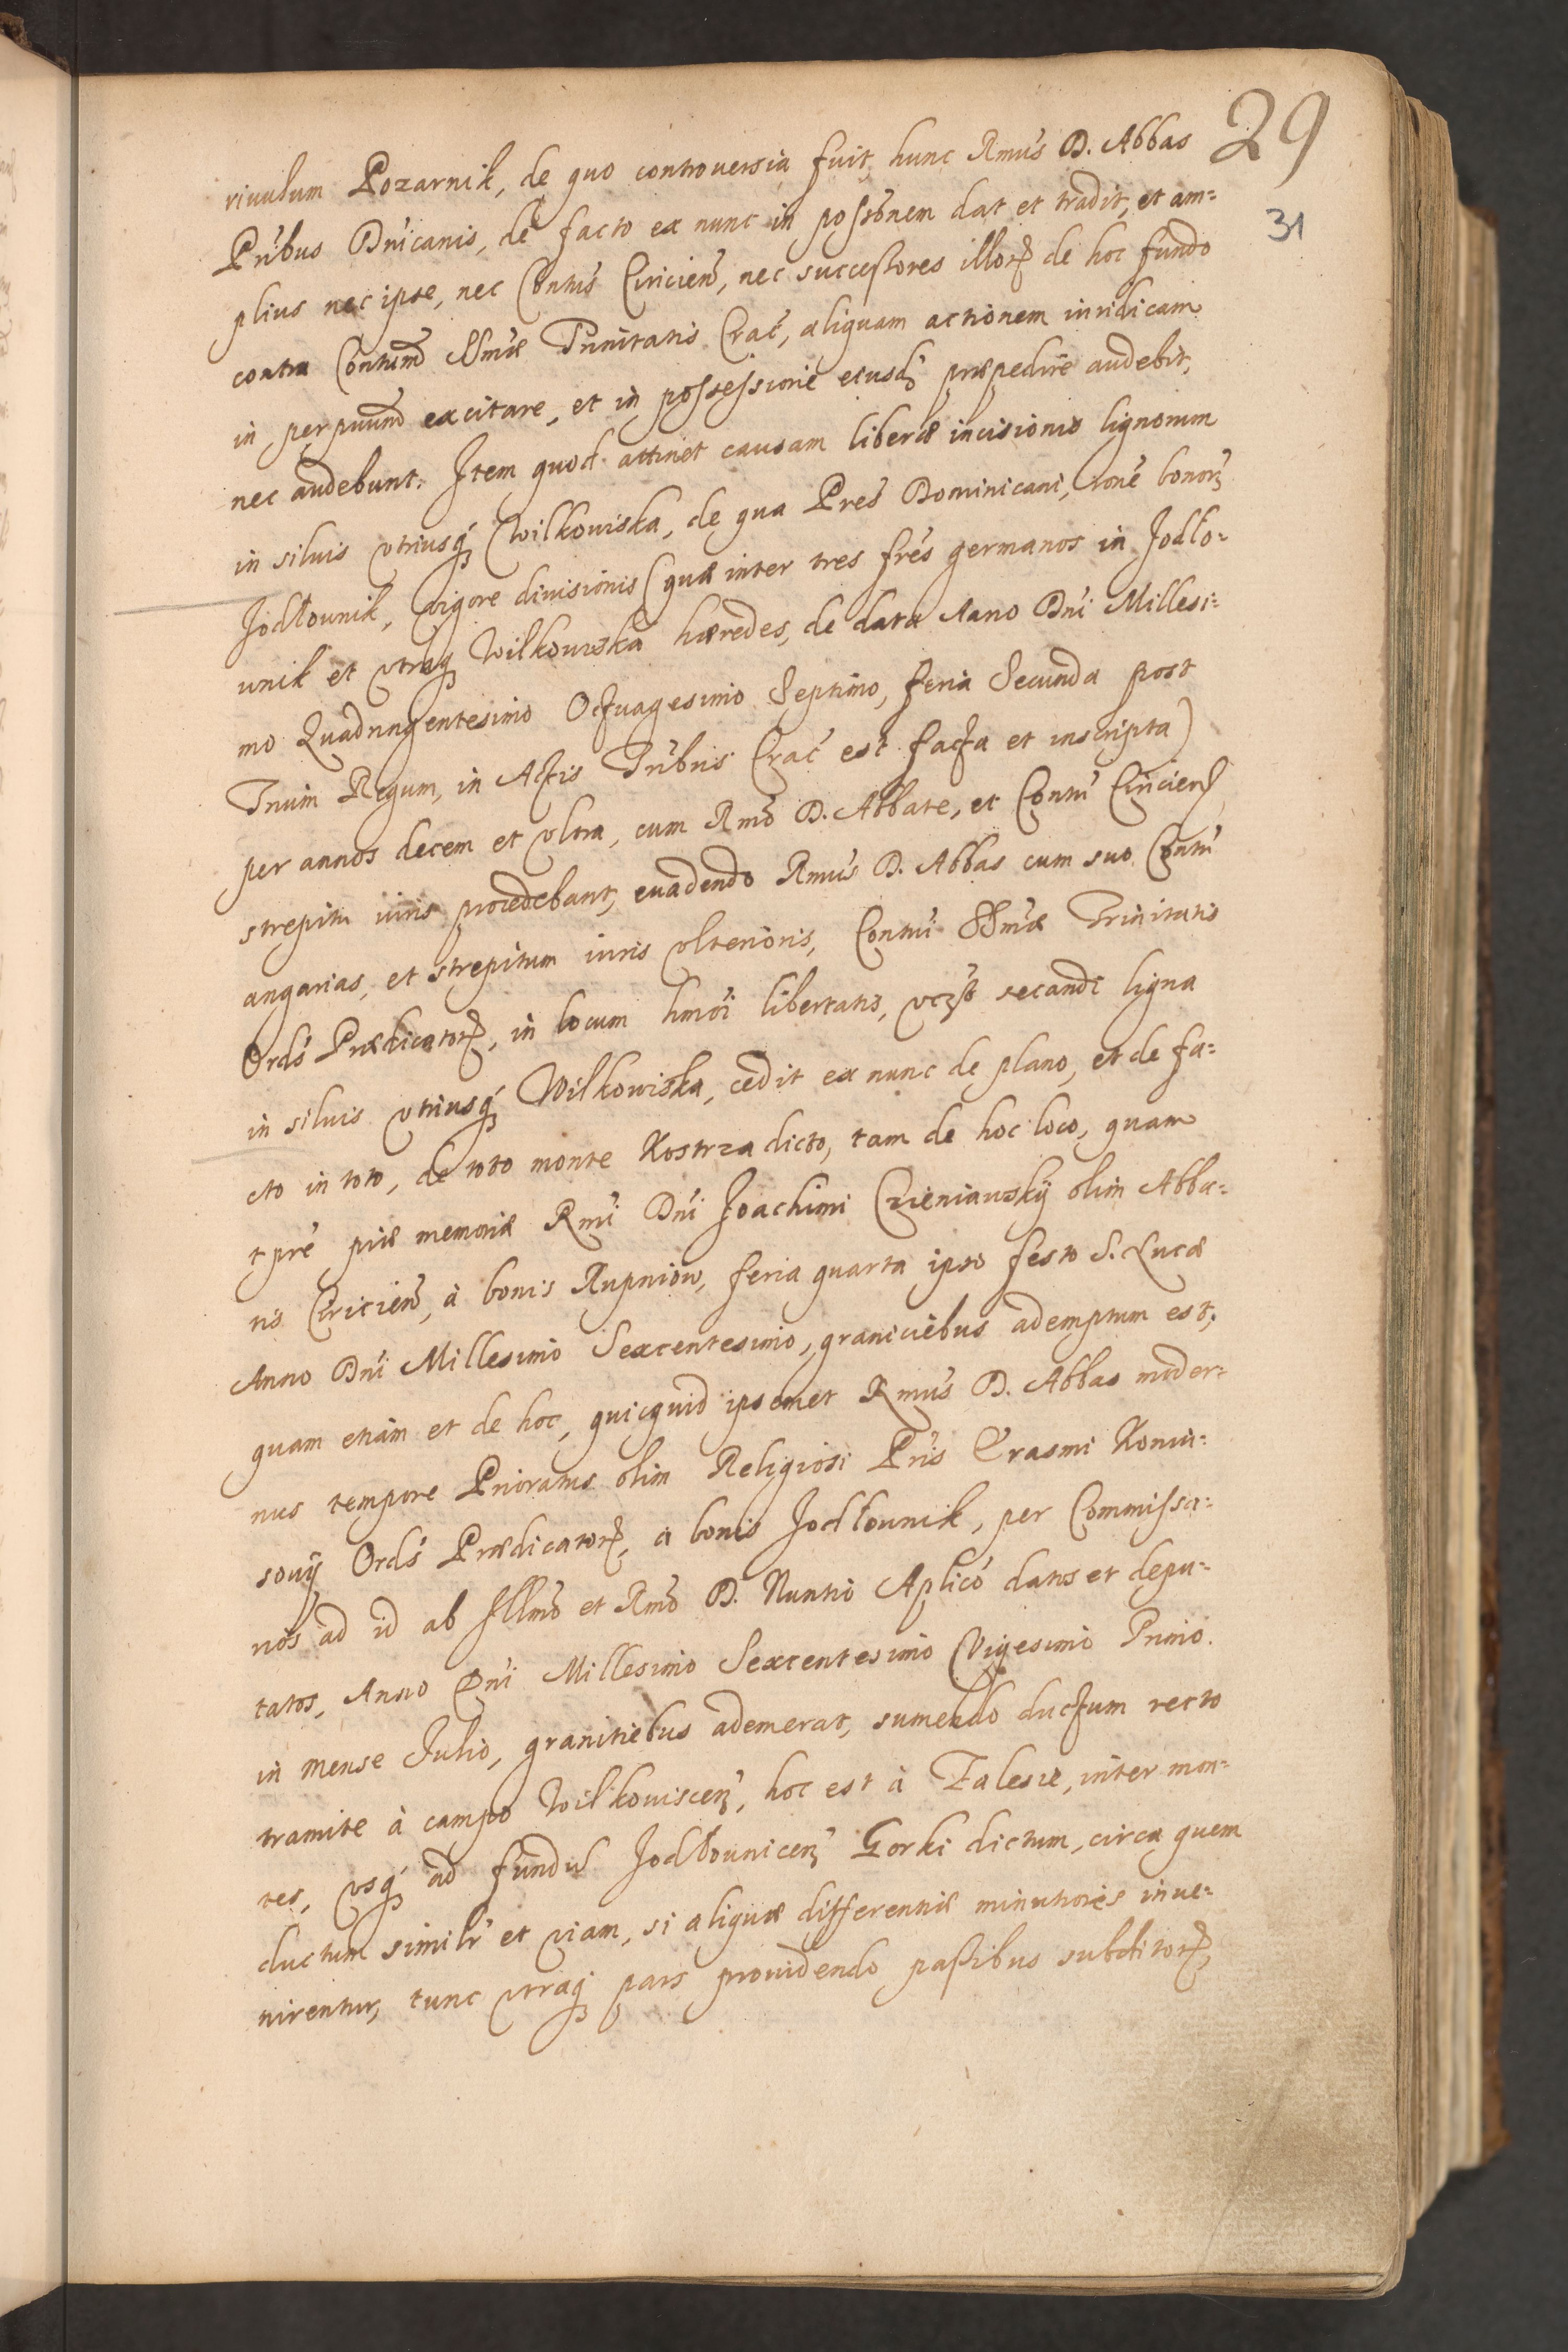 29
31
riuulum Pozarnik, de quo controuersia fuit, hunc Rmus D. Abbas
Pribus Dnicanis, de facto ex nunc in possonem dat et tradit, et am=
plius nec ipse, nec Contus Ciricien, nec successores illor de hoc fundo
contra Contum SSmæ Trinitatis Crac, aliquam actionem iuridicam
in perpuum excitare, et in possessione eiusd præpedire audebit,
nec audebunt. Item quod attinet causam liberæ incisionis lignorum
in siluis vtriusq Wilkowiska, de qua Pres Dominicani, rone bonor
Jodłounik, vigore diuisionis (quæ inter tres frés germanos in Jodło=
unik et vtraq Wilkowiska hæredes, de data Anno Dni Millesi=
mo Quadringentesimo Octuagesimo Septimo, feria Secunda post
Trium Regum, in Actis Tribus Crac est facta et inscripta)
per annos decem et vltra, cum Rmo D. Abbate, et Contu Ciricien
strepitu iuris procedebant, euadendo Rmus D. Abbas cum suo Contu
angarias, et strepitum iuris vlterioris, Contui SSmæ Trinitatis
Ords Prædicator, in locum hmoi libertatis, vczt secandi ligna
in siluis vtriusq Wilkowiska, cedit ex nunc de plano, et de fa=
cto in toto, de toto monte Kostrza dicto, tam de hoc loco, quam
tpre piæ memoriæ Rmi Dni Joachimi Czieniawskij olim Abba=
tis Ciricien, à bonis Rupniow, feria quarta ipso festo S. Lucæ
Anno Dni Millesimo Sexcentesimo, graniciebus ademptum est,
quam etiam et de hoc, quicquid ipsemet Rmus D. Abbas moder=
nus tempore Prioratus olim Religiosi Pris Erasmi Koniu=
sovij Ords Prædicator, a bonis Jodłounik, per Commissa=
rios ad id ab Illmo et Rmo D. Nuntio Aplico datos et depu=
tatos, Anno Dni Millesimo Sexcentesimo Vigesimo Primo.
in Mense Julio, granitiebus ademerat, sumendo ductum recto
tramite à campo Wilkowiscen, hoc est à Zalesie, inter mon=
tes, vsq ad fundu Jodłounicen Gorki dictum, circa quem
ductum simili et viam, si aliquæ differentiæ minutiores inue=
nirentur, tunc vtraq pars prouidendo passibus subditor,